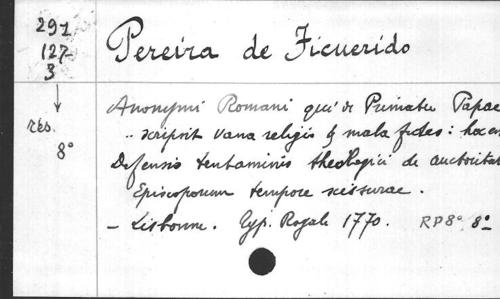 291
127
3
res.
8°
Pereira de Ficuerido
Anonymi Romani qui de Primatu Papae
.. scripsit vana religio & mala fides: hoc es
Defensio tentaminis theologici de auctoritat
Episcoporum tempore scissurae.
– Lisbonne. Typ. Royale 1770. RP8° 8°